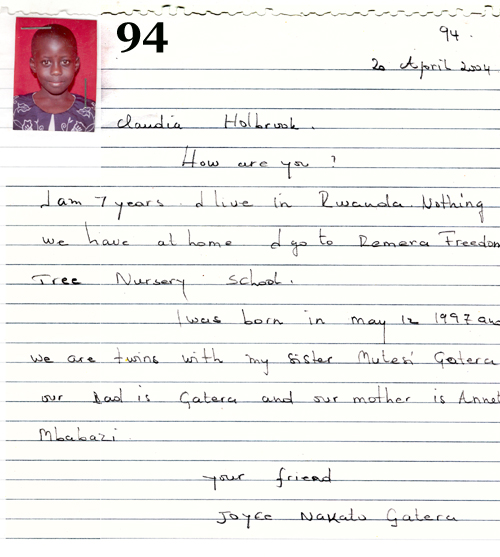 94
94.
20 April 2004
Claudia Holbrook.
How are you ?
I am 7 years. I live in Rwanda. Nothing
we have at home I go to Remera Freedom
Tree Nursery School.
I was born in may 12 1997 and
we are twins with my sister Mutesi Gatera
our Dad is Gatera and our mother is Annet
Mbabazi
your friend
Joyce Nakatu Gatera